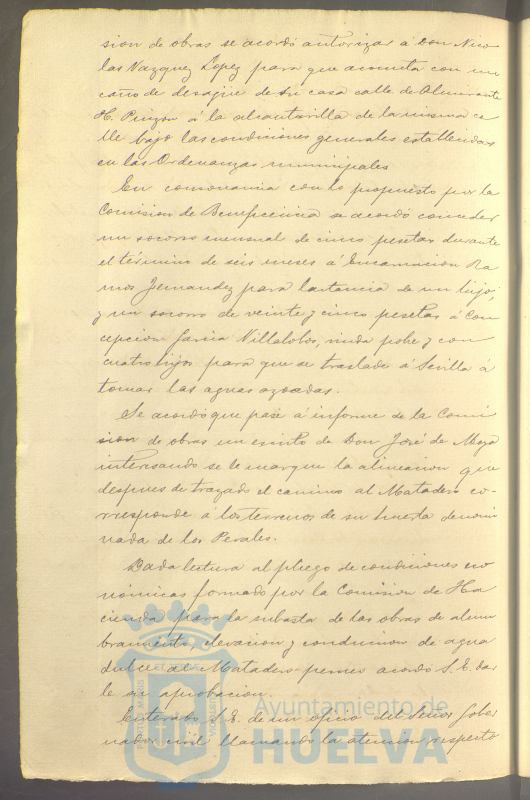 sion de obras se acordó autorizar á Don Nico
las Vazquez Lopez para que acometa con un
caño de desagüe de su casa calle de Almirante
H. Pinzon á la alcantarilla de la misma ca
lle bajo las condiciones generales establecidas
en las Ordenanzas municipales
En consonancia con lo propuesto por la
Comision de Beneficencia se acordó conceder
un socorro mensual de cinco pesetas durante
el término de seis meses á Encarnacion Ra
mos Fernandez para lactancia de un hijo,
y un socorro de veinte y cinco pesetas á Con
cepcion Garcia Villalobos, viuda pobre y con
cuatro hijos para que se traslade á Sevilla á
tomar las aguas azoadas.
Se acordó que pase á informe de la Comi
sion de obras un escrito de Don José de Moya
interesando se le marque la alineacion que
despues de trazado el camino al Matadero co-
rresponde á los terrenos de su huerta denomi
nada de los Perales.
Dada lectura al pliego de condiciones eco
nómicas formado por la Comision de Ha
cienda para la subasta de las obras de alum
bramiento, elevacion y conduccion de agua
dulce al Matadero acordó S.E. dar
le su aprobacion.
Enterado S.E. de un oficio del Señor Gober
nador civil llamando la atencion respecto
Ayuntamiento de
HUELVA